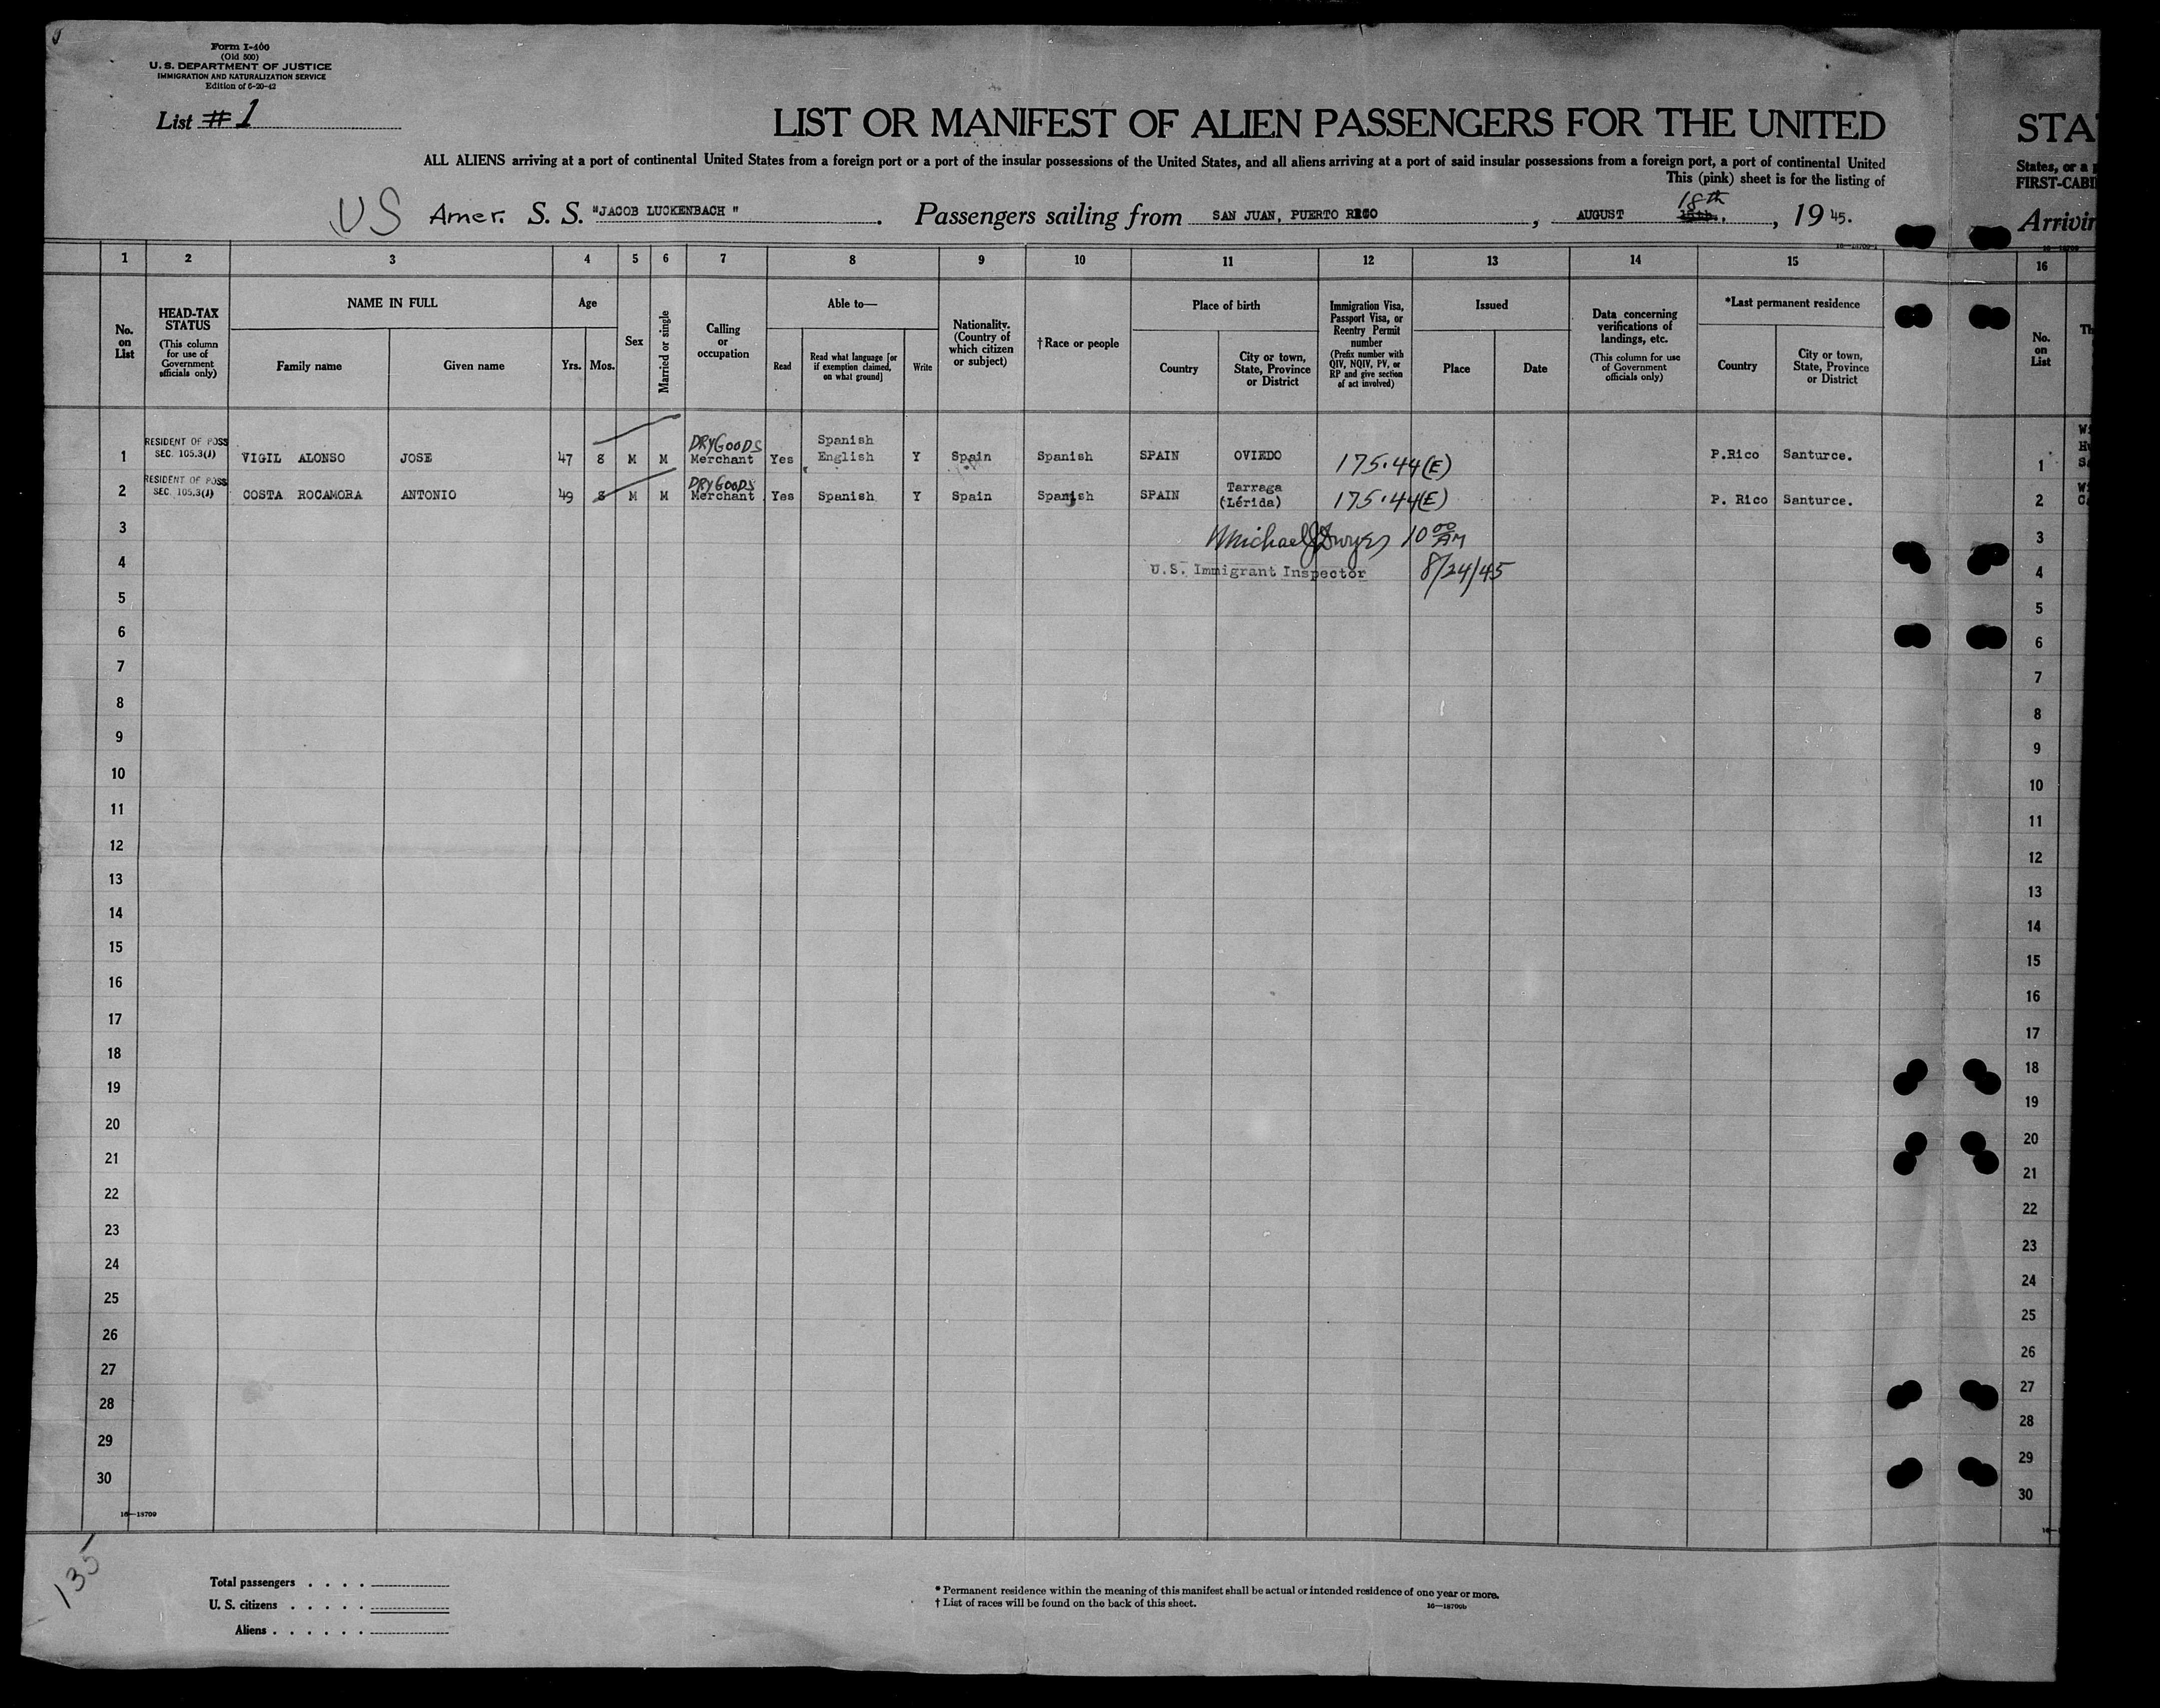 Form I-400
(Old 500)
U. S. DEPARTMENT OF JUSTICE
IMMIGRATION AND NATURALIZATION SERVICE
Edition of 6-20-42
List # 1
LIST OR MANIFEST OF ALIEN PASSENGERS FOR THE UNITED STA
ALL ALIENS arriving at a port of continental United States from a foreign port or a port of the insular possessions of the United States, and all aliens arriving at a port of said insular possessions from a foreign port, a port of continental United
States, or a
This (pink) sheet is for the listing of
FIRST-CABI
US Amer. S. S. "JACOB LUCKENBACH". Passengers sailing from SAN JUAN, PUERTO RICO, AUGUST 18th, 1945.
Arrivin
1 2 3 4 5 6 7 8 9 10 11 12 13 14 15 16
No. on List
HEAD-TAX STATUS
(This column for use of Government officials only)
NAME IN FULL
Family name
Given name
Age
Yrs.
Mos.
Sex
Married or single
Calling or occupation
Able to—
Read
Read what language [or if exemption claimed, on what ground]
Write
Nationality. (Country of which citizen or subject)
†Race or people
Place of birth
Country
City or town, State, Province or District
Immigration Visa, Passport Visa, or Reentry Permit number
(Prefix number with QIV, NQIV, PV, or RP and give section of act involved)
Issued
Place
Date
Data concerning verifications of landings, etc.
(This column for use of Government officials only)
*Last permanent residence
Country
City or town, State, Province or District
No. on List
1 RESIDENT OF POSS SEC. 105.3(J) VIGIL ALONSO JOSE 47 8 M M DRY GOODS Merchant Yes Spanish English Y Spain Spanish SPAIN OVIEDO 175.44(E) P.Rico Santurce. 1
2 RESIDENT OF POSS SEC. 105.3(J) COSTA ROCAMORA ANTONIO 49 8 M M DRY GOODS Merchant Yes Spanish Y Spain Spanish SPAIN Tarraga (Lérida) 175.44(E) P. Rico Santurce. 2
3 Michael J Dwyer 10 00 AM 3
4 U.S. Immigrant Inspector 8/24/45 4
5 5
6 6
7 7
8 8
9 9
10 10
11 11
12 12
13 13
14 14
15 15
16 16
17 17
18 18
19 19
20 20
21 21
22 22
23 23
24 24
25 25
26 26
27 27
28 28
29 29
30 30
16—18709
135
Total passengers . . . .
U. S. citizens . . . . .
Aliens . . . . . .
* Permanent residence within the meaning of this manifest shall be actual or intended residence of one year or more.
† List of races will be found on the back of this sheet.
16—18709b